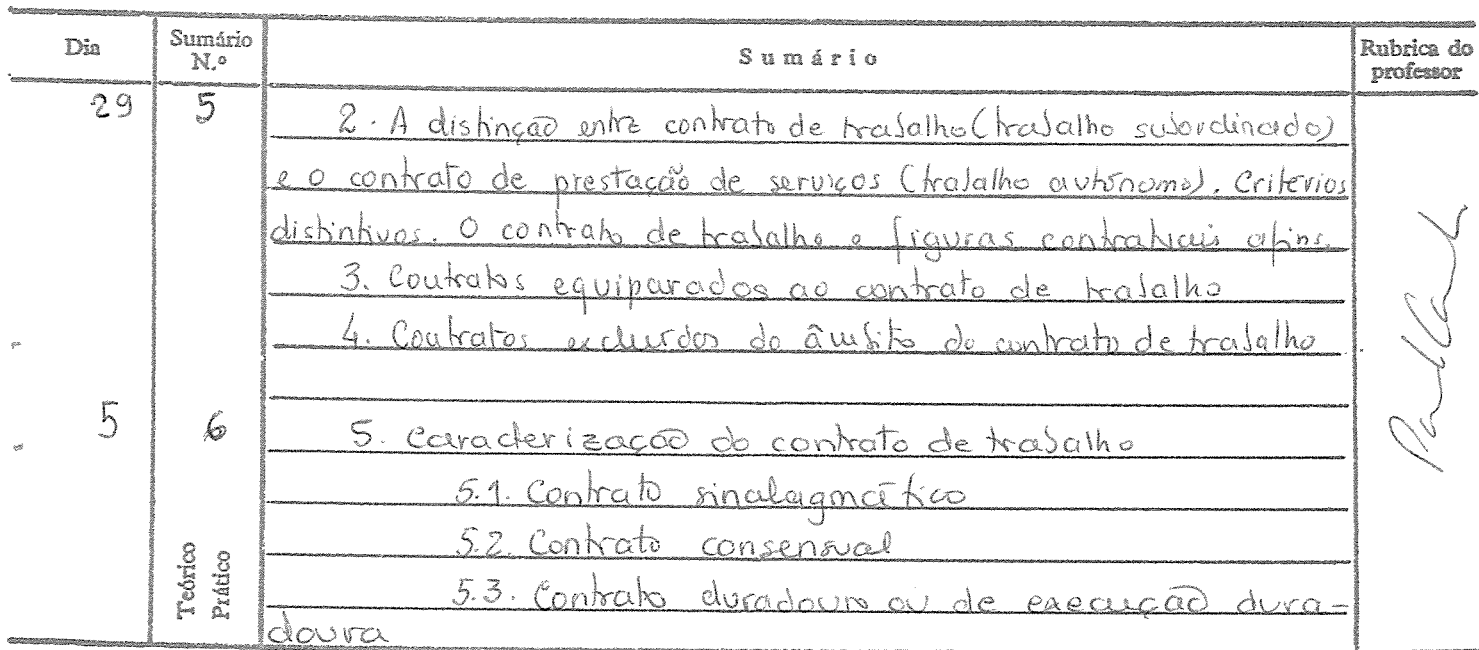 Dia Sumário N.º Sumário Rubrica do professor
29 5 2. A distinção entre contrato de trabalho (trabalho subordinado)
e o contrato de prestação de serviços (trabalho autónomo). Critérios
distintivos. O contrato de trabalho e figuras contratuais afins.
3. Contratos equiparados ao contrato de trabalho
4. Contratos excluídos do âmbito do contrato de trabalho
5 6 5. Caracterização do contrato de trabalho
5.1. Contrato sinalagmático
5.2. Contrato consensual
Teórico
Prático
5.3. Contrato duradouro ou de execução dura=
doura